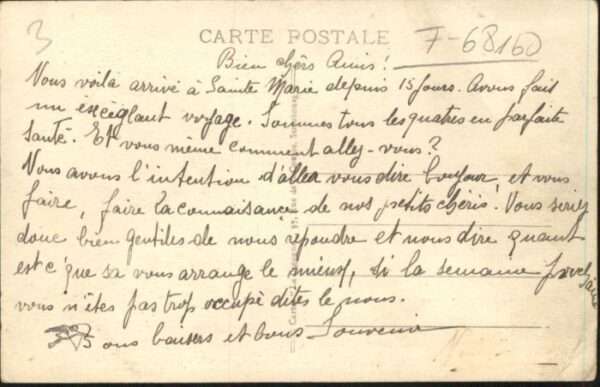 3
CARTE POSTALE
7-68160
Bien chèrs Amis!
Nous voila arrivé à Sainte Marie depuis 15 Jours. Avons fait
un éxcèglant voyage. Sommes tous les quatres en parfaite
Santé. Et vous même comment allez-vous?
Nous avons l'intention d'aller vous dire bonjour, et vous
faire, faire la connaisance de nos petits chéris. Vous seriez
donc bien gentiles de nous répondre et nous dire quant
est c'que sa vous arrange le mieux, si la semaine
vous n'êtes pas trop occupè dites le nous.
Bons baisers et bons Souvenir